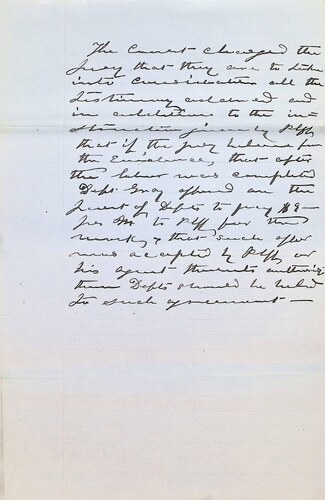 The Court charged the
Jury that they are to take
into consideration all the
testimony adduced and
in addition to the in=
struction given by Plffs
that if the jury believe from
the Evidence, that after
the labor was completed
Deft Gray offered on the
part of Defts to pay $9–
per M to Plff for the
work, & that such offer
was accepted by Plffs or
his agent thereunto authorized
then Defts should be held
to such agreement —